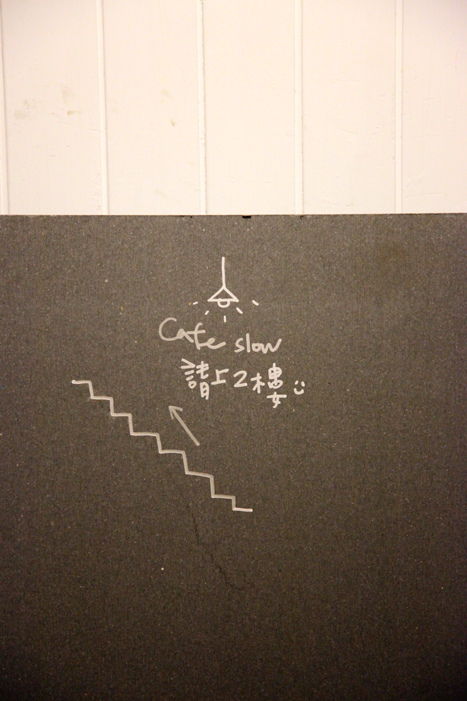 Cafe slow
請上2樓